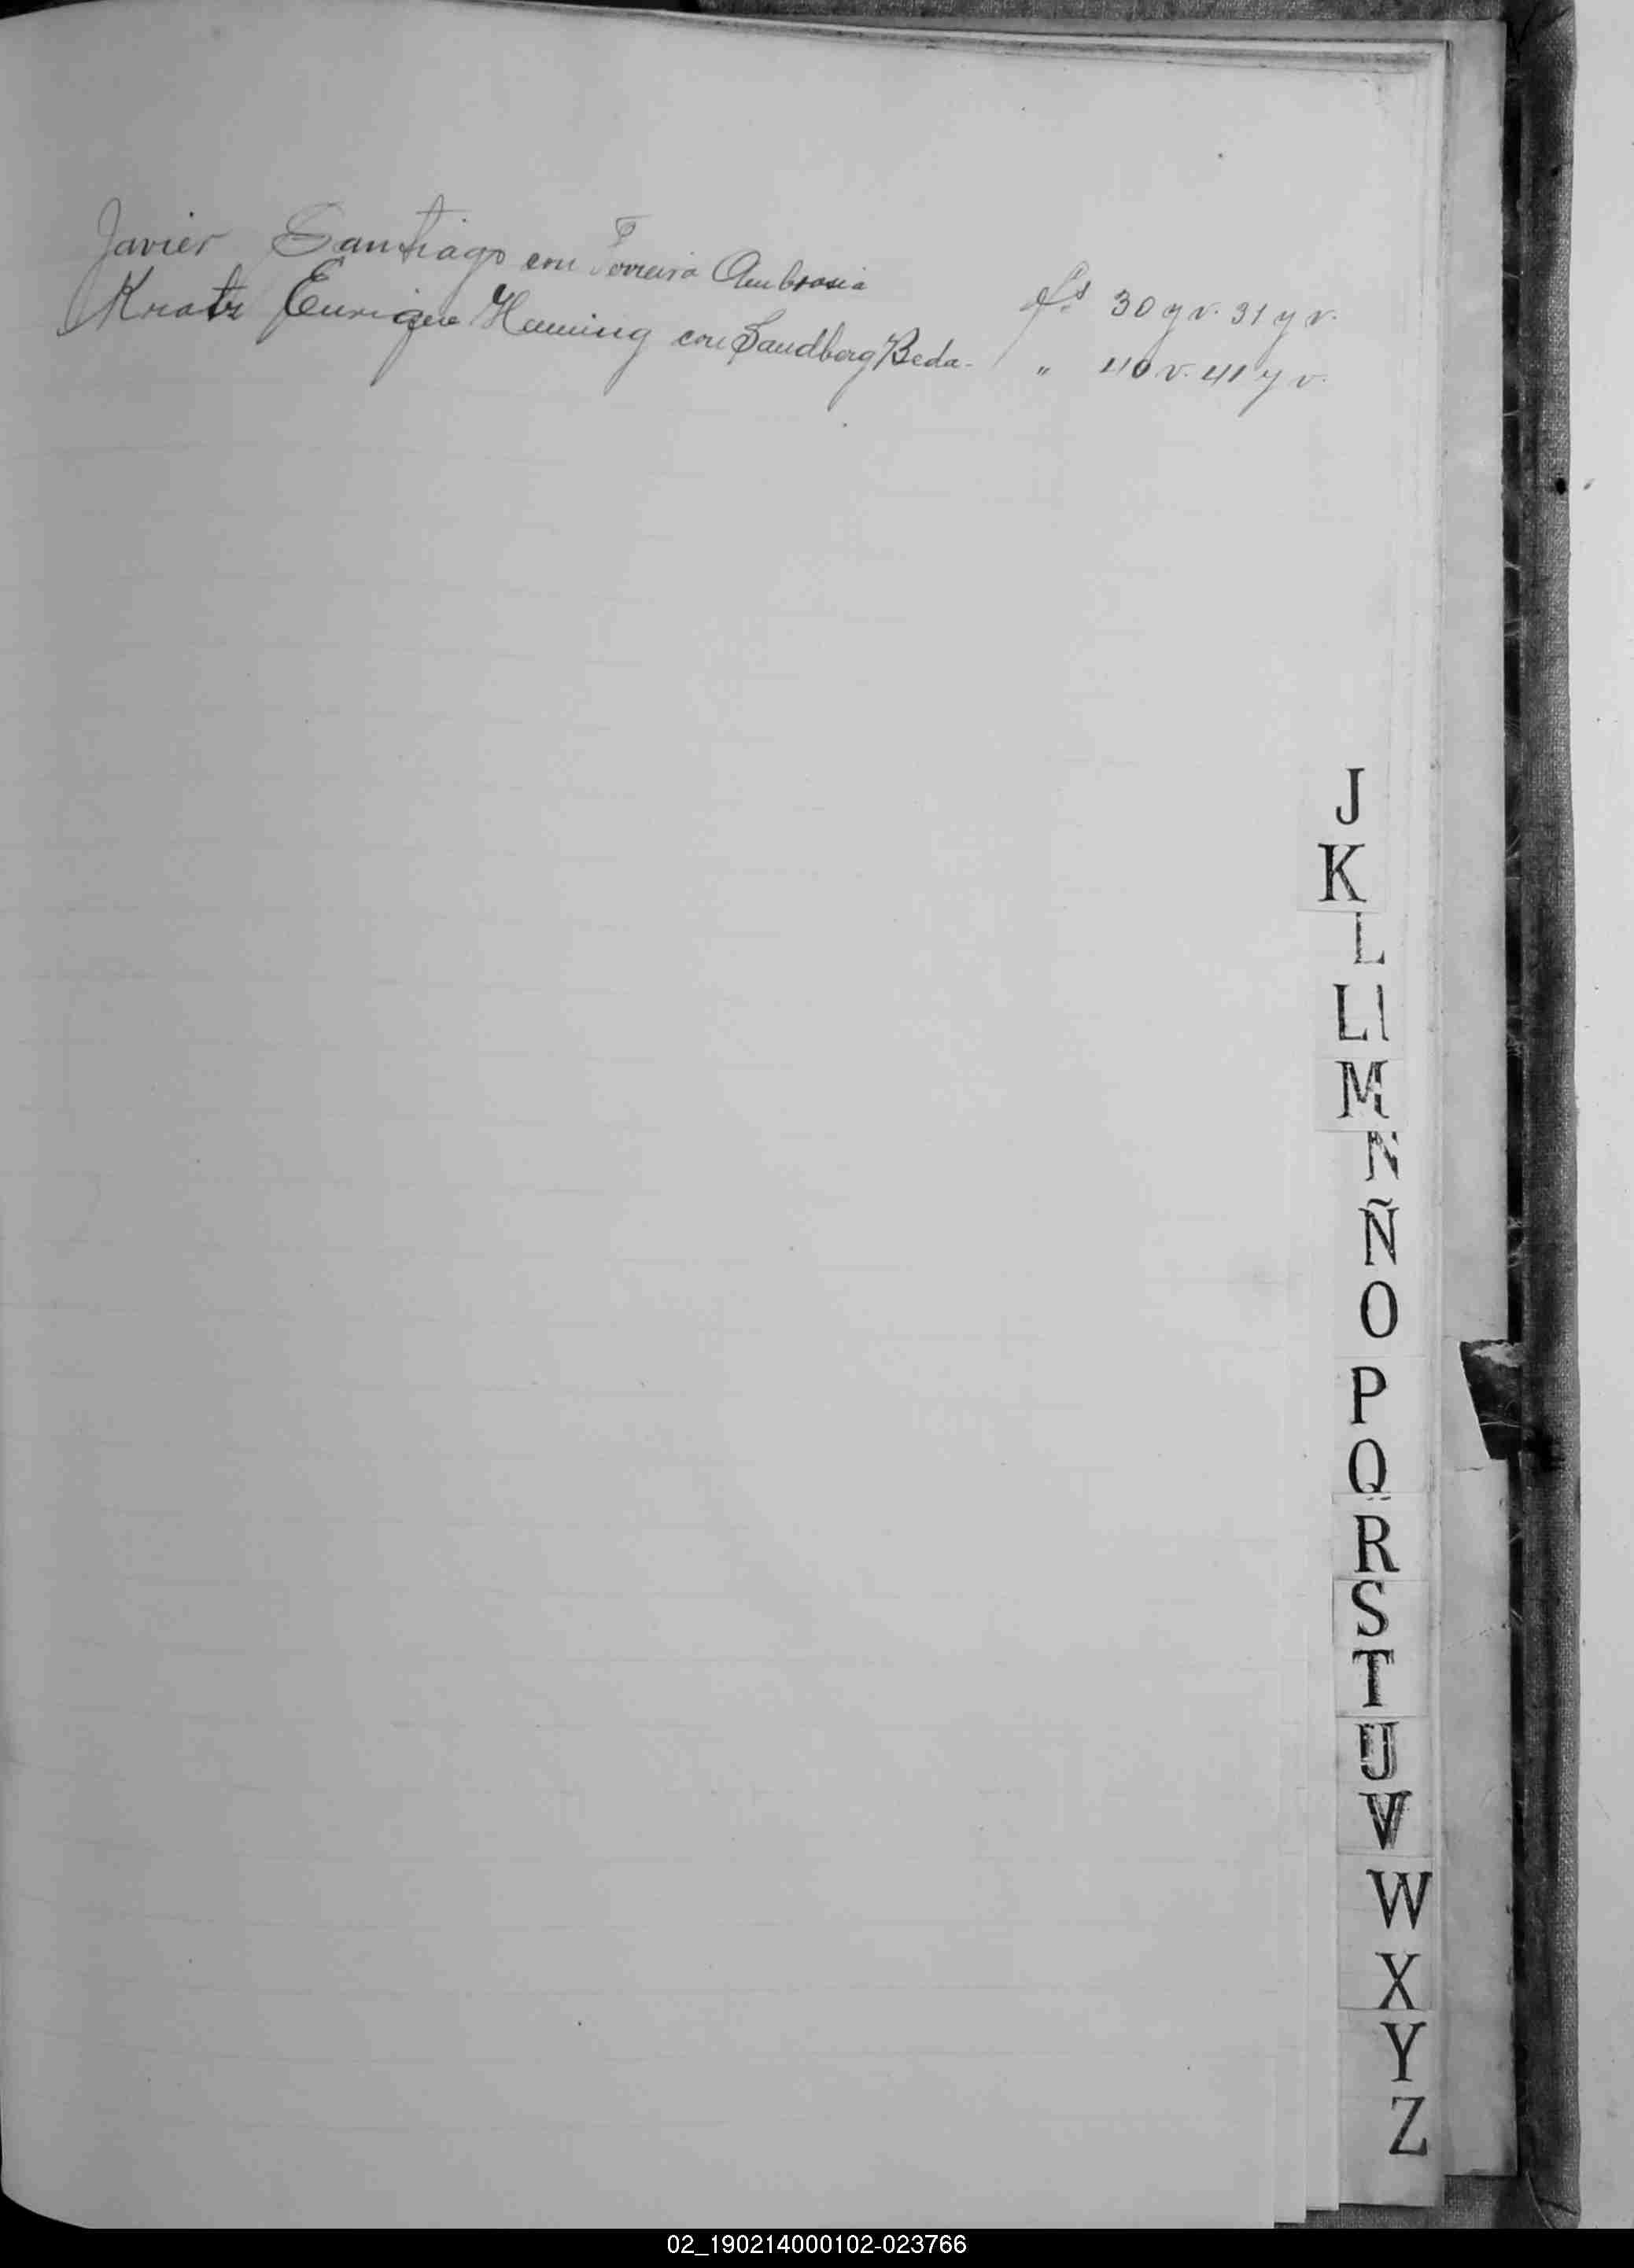 Javier Santiago con Ferreira Ambrosia fs 30 y v. 31 y v.
Kratz Enrique Hening con Sandberg Beda - " 40 v. 41 y v.
J
K
L
Ll
M
N
Ñ
O
P
Q
R
S
T
U
V
W
X
Y
Z
02_190214000102-023766